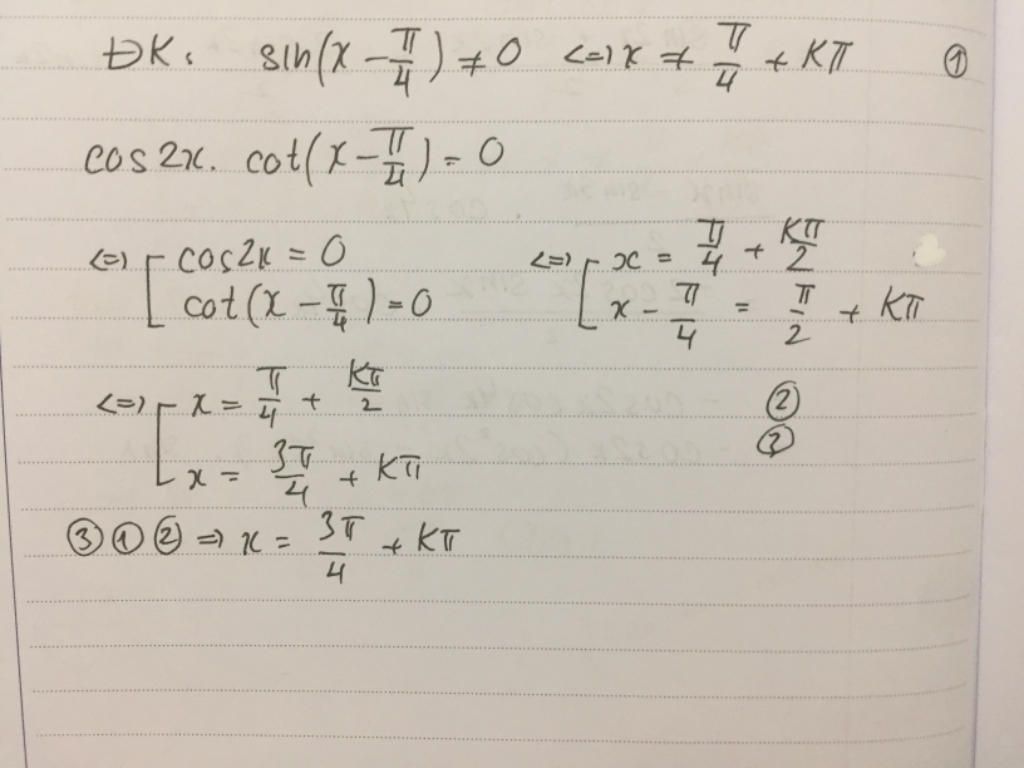 ĐK: sin(x - π/4) ≠ 0 <=> x ≠ π/4 + Kπ ①
cos2x. cot(x - π/4) = 0
<=> [ cos2x = 0 <=> [ x = π/4 + Kπ/2
cot(x - π/4) = 0 x - π/4 = π/2 + Kπ
<=> [ x = π/4 + Kπ/2 ②
x = 3π/4 + Kπ ③
③ ① ② => x = 3π/4 + Kπ